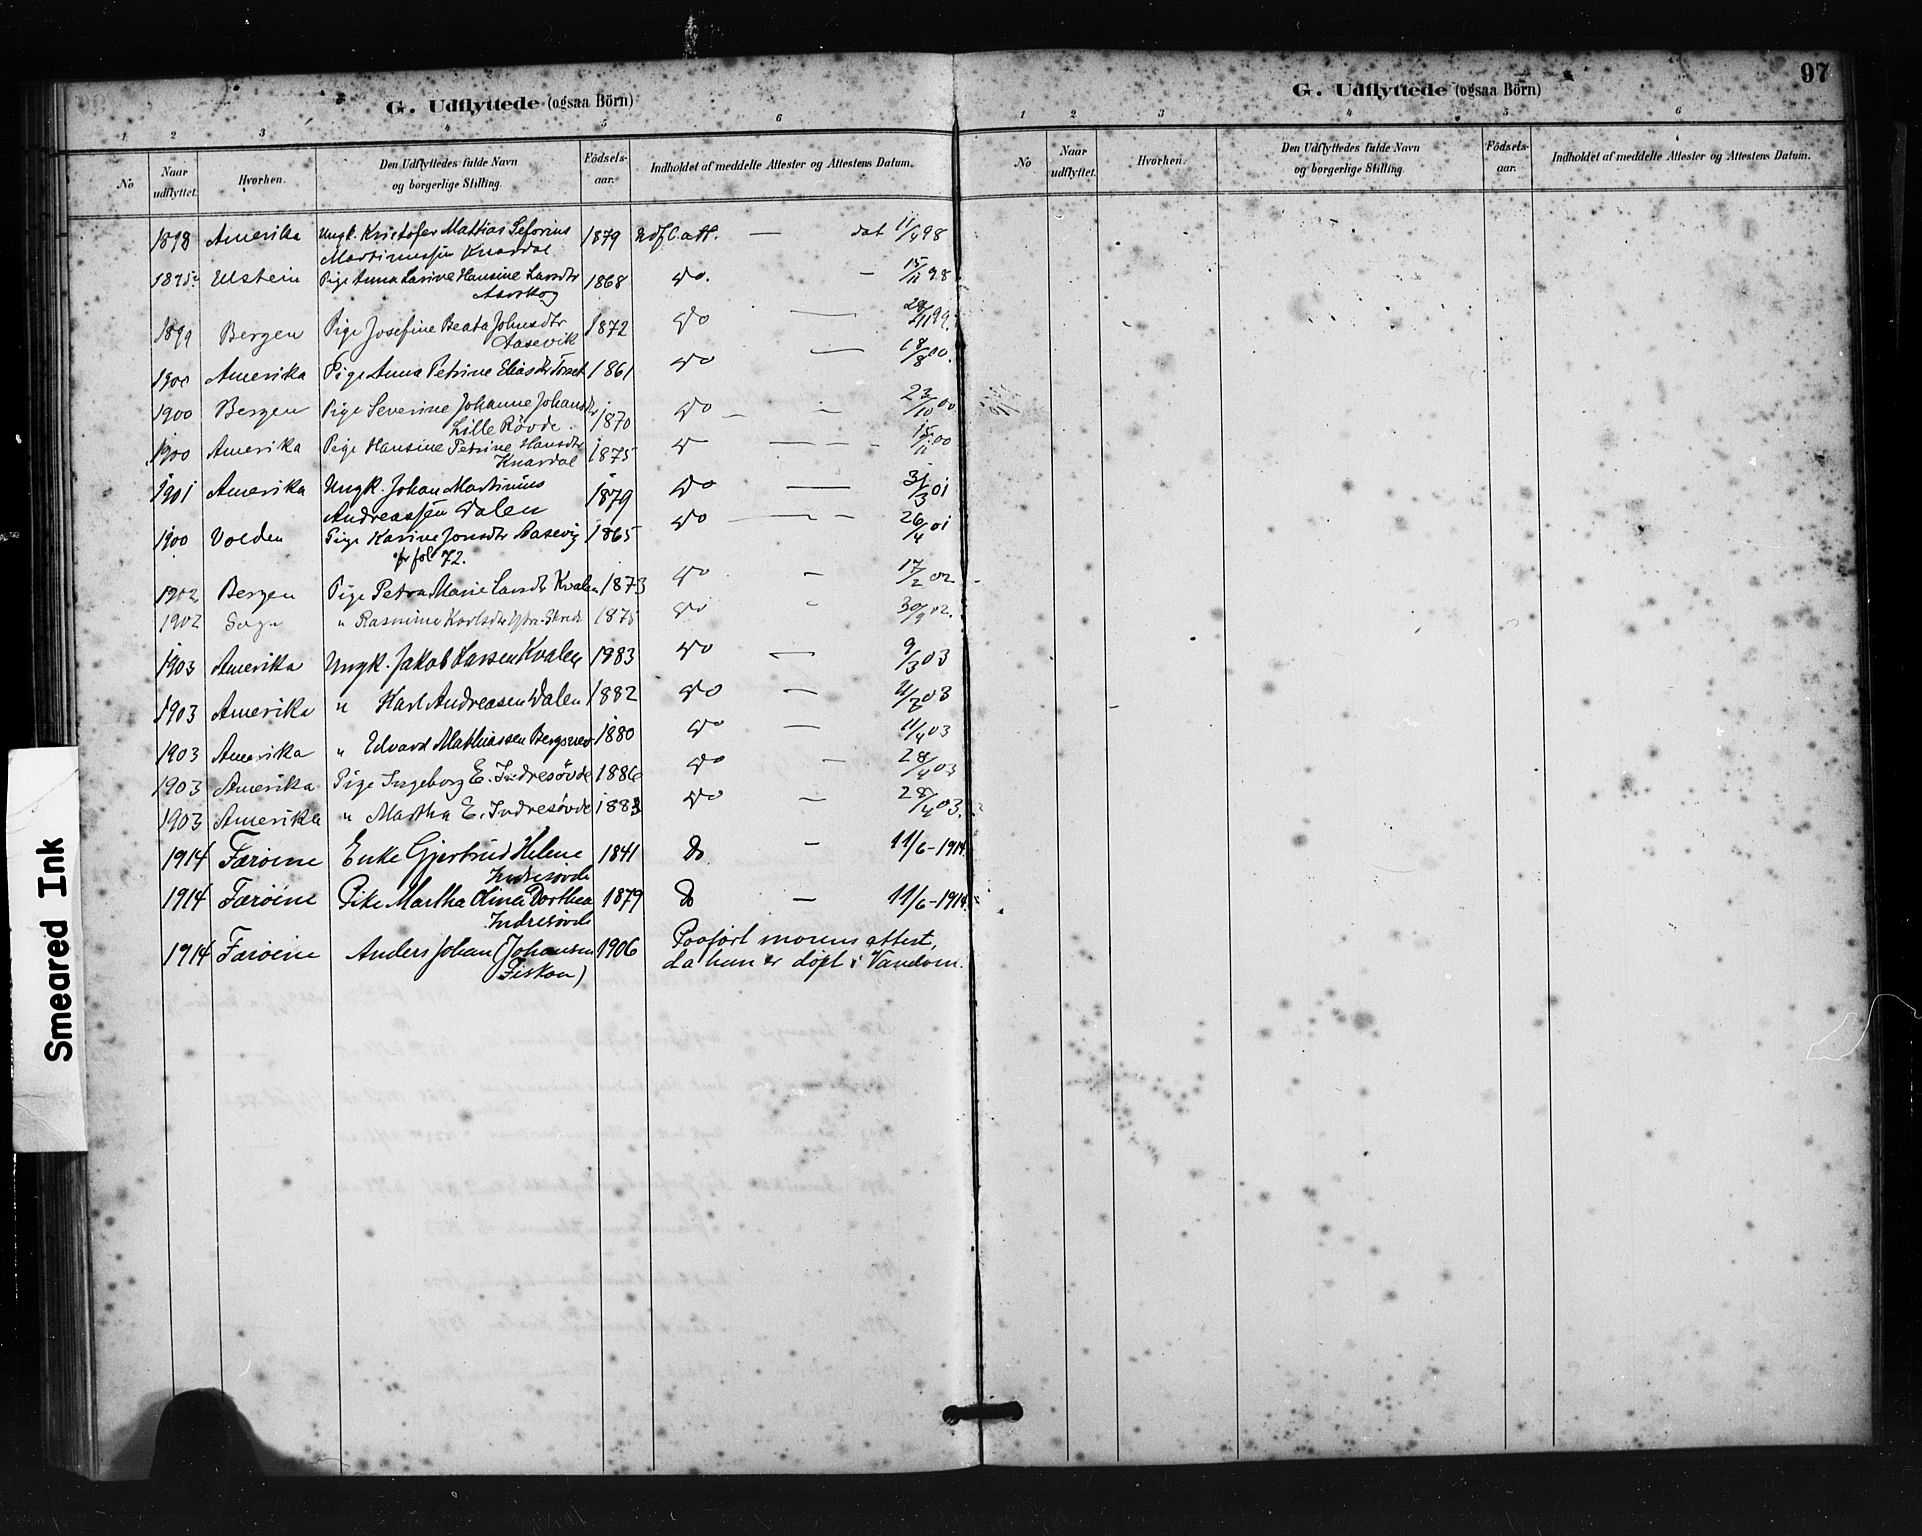 G. Udflyttede (ogsaa Börn)
1 2 3 4 5 6
No Naar udflyttet. Hvorhen. Den Udflyttedes fulde Navn og borgerlige Stilling. Födsels-aar. Indholdet af meddelte Attester og Attestens Datum.
1898 Amerika Ungk. Kristofer Mattias Seferius 1879 Udfl. att. — dat 11/4 98
Martinussen Knardal
Ulstein Pige Anna Lasine Hansine Larsdtr 1868 Do. — 15/11 98
Aarskog
1899 Bergen Pige Josefine Beata Johnsdtr 1872 Do —
Aasevik
1900 Amerika Pige Anna Petrine Eliasdtr 1861 Do — 18/8 00.
1900 Bergen Pige Severine Johanne Johansdtr 1870 Do — 23/10 00
Lille Rövde.
1900 Amerika Pige Hansine Petrine Hansdtr 1875 D — 15/11 00
Knardal
1901 Amerika Ungk. Johan Martinius 1879 Do — 31/3 01
Andreassen Dalen
1900 Volden Pige Karine Jonsdtr Aasevig 1865 Do — 26/4 01
fr fol 72.
1902 Bergen Pige Petra Marie Larsdtr Kvalen 1873 Do — 17/2 02
1902 " Rasmine Karlsdtr 1875 Do " 30/9 02.
1903 Amerika Ungk. Jakob Larsen Kvalen 1983 Do — 9/3 03
1903 Amerika " Karl Andreasen Dalen 1882 Do —
1903 Amerika " Edvard Mathiassen 1880 Do — 11/4 03
1903 Amerika Pige Ingeborg E. Indresövde 1886 Do — 28/4 03
1903 Amerika " Martha E. Indresövde 1883 Do — 28/4 03.
1914 Færøine Enke Gjertrud Helene 1841 Do — 11/6-1914.
Indresövde
1914 Færøine Pike Martha Olina Dorthea 1879 Do — 11/6-1914.
Indresövde
1914 Færøine Anders Johan (Johansen 1906 Paaført morens attest,
Fiskaa) da han er døpt i Vandven.
G. Udflyttede (ogsaa Börn) 97
1 2 3 4 5 6
No Naar udflyttet. Hvorhen. Den Udflyttedes fulde Navn og borgerlige Stilling. Födsels-aar. Indholdet af meddelte Attester og Attestens Datum.
Smeared Ink